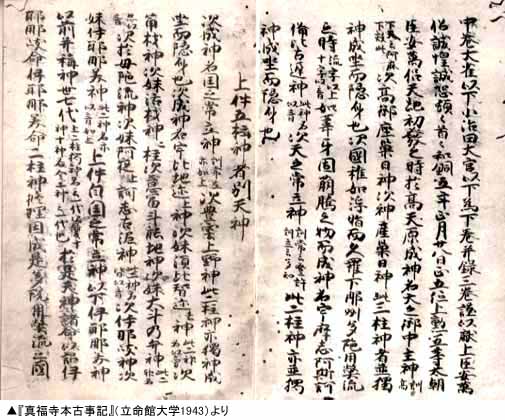 中巻大雀以下小治田大宮以下爲下巻并録三巻謹以献上臣安萬
侶誠惶誠恐頓々首々和銅五年正月廿八日正五位上勲五等太朝
臣安萬侶天地初發之時於高天原成神名天之御中主神訓高
下天云阿麻下效此次高御産巣日神次神産巣日神此三柱神者並獨
神成坐而隱身也次國稚如浮脂而久羅下那州多陁用弊流
之時流字以上十字以音如葦牙因萌騰之物而成神名宇摩志阿斯訶
備比古遅神此神名以音次天之常立神訓常云登許訓立云多知此二柱神亦並獨
神成坐而隱身也
上件五柱神者別天神
次成神名国之常立神訓常立亦如上次豊雲上野神此二柱神亦獨神成
坐而隱身也次成神名宇比地迩上神次妹湏比智迩去神此二神名以音次
角杙神次妹活杙神二柱次意富斗能地神次妹大斗乃弁神此二神名亦
以音次於母陁流神次妹阿夜上訶志古泥神此二神名皆以音次伊耶那岐神次
妹伊耶那美神此二神名亦以音如上上件自国之常立神以下伊耶那美神
以前并稱神世七代上二柱獨神各云一代次雙十神各合二神云一代也於是天神諸命以詔伊
耶那岐命伊耶那美命二柱神修理固成是多陁用弊流之國
▲『真福寺本古事記』（立命館大学1943）より